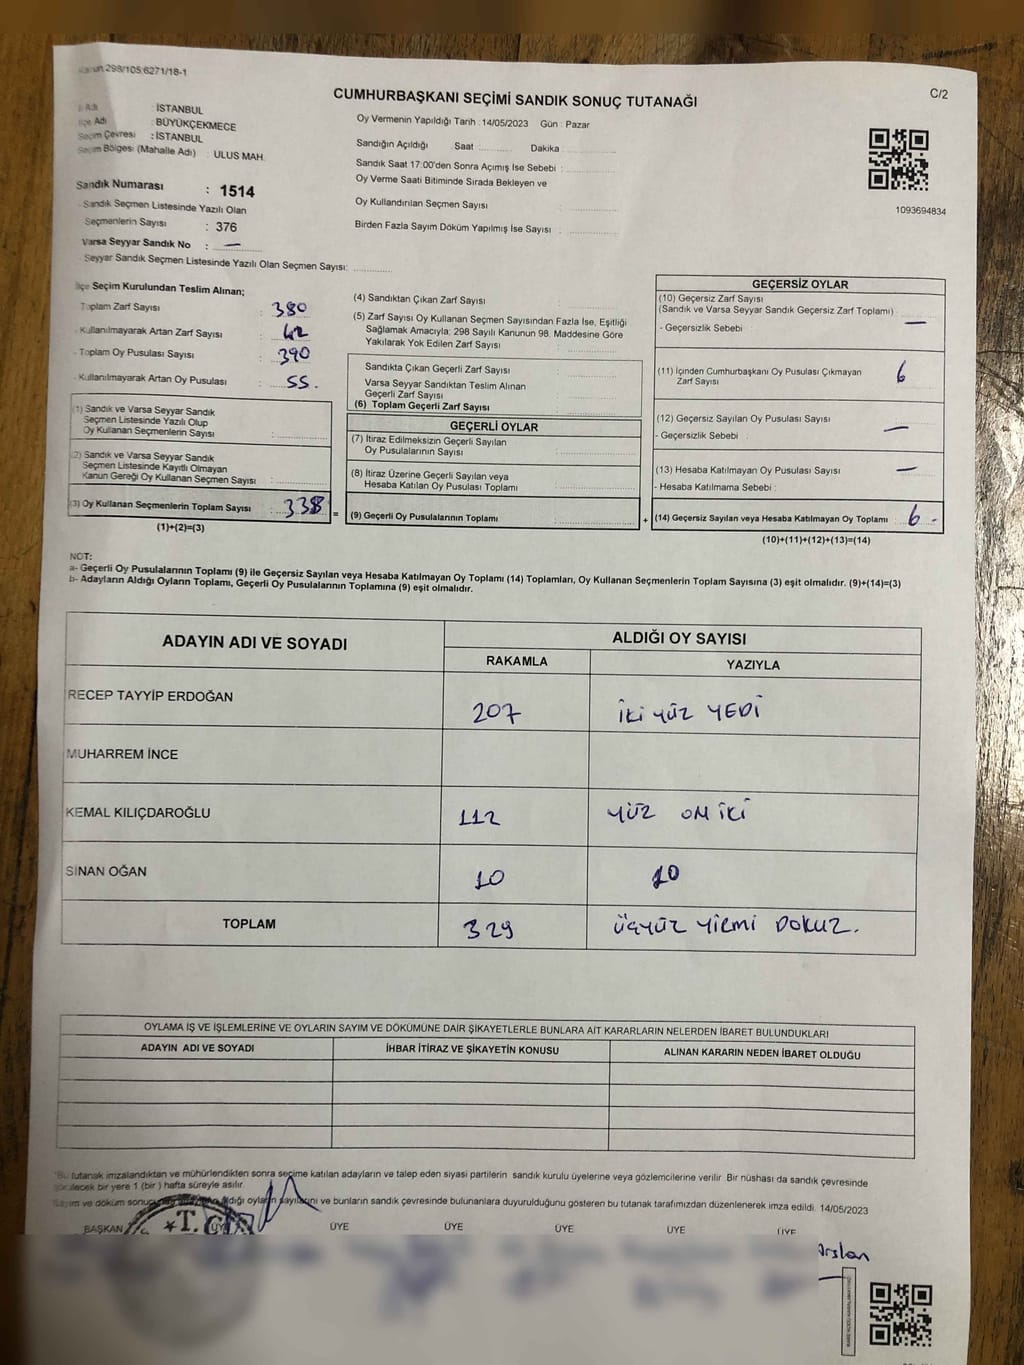 298/105,6271/18-1
C/2
CUMHURBAŞKANI SEÇİMİ SANDIK SONUÇ TUTANAĞI
Adı : İSTANBUL
Adı : BÜYÜKÇEKMECE
Seçim Çevresi : İSTANBUL
Seçim Bölgesi (Mahalle Adı) : ULUS MAH.
Sandık Numarası : 1514
Sandık Seçmen Listesinde Yazılı Olan
Seçmenlerin Sayısı : 376
Varsa Seyyar Sandık No : —
Seyyar Sandık Seçmen Listesinde Yazılı Olan Seçmen Sayısı:
Oy Vermenin Yapıldığı Tarih : 14/05/2023 Gün : Pazar
Sandığın Açıldığı Saat Dakika
Sandık Saat 17:00'den Sonra Açımış İse Sebebi :
Oy Verme Saati Bitiminde Sırada Bekleyen ve
Oy Kullandırılan Seçmen Sayısı :
Birden Fazla Sayım Döküm Yapılmış İse Sayısı :
1093694834
Seçim Kurulundan Teslim Alınan;
Toplam Zarf Sayısı : 380
Kullanılmayarak Artan Zarf Sayısı : 42
Toplam Oy Pusulası Sayısı : 390
Kullanılmayarak Artan Oy Pusulası : 55.
(1) Sandık ve Varsa Seyyar Sandık
Seçmen Listesinde Yazılı Olup
Oy Kullanan Seçmenlerin Sayısı :
(2) Sandık ve Varsa Seyyar Sandık
Seçmen Listesinde Kayıtlı Olmayan
Kanun Gereği Oy Kullanan Seçmen Sayısı :
(3) Oy Kullanan Seçmenlerin Toplam Sayısı : 338
(1)+(2)=(3)
(4) Sandıktan Çıkan Zarf Sayısı :
(5) Zarf Sayısı Oy Kullanan Seçmen Sayısından Fazla İse, Eşitliği
Sağlamak Amacıyla; 298 Sayılı Kanunun 98. Maddesine Göre
Yakılarak Yok Edilen Zarf Sayısı :
Sandıkta Çıkan Geçerli Zarf Sayısı :
Varsa Seyyar Sandıktan Teslim Alınan
Geçerli Zarf Sayısı :
(6) Toplam Geçerli Zarf Sayısı :
GEÇERLİ OYLAR
(7) İtiraz Edilmeksizin Geçerli Sayılan
Oy Pusulalarının Sayısı :
(8) İtiraz Üzerine Geçerli Sayılan veya
Hesaba Katılan Oy Pusulası Toplamı :
= (9) Geçerli Oy Pusulalarının Toplamı :
GEÇERSİZ OYLAR
(10) Geçersiz Zarf Sayısı
(Sandık ve Varsa Seyyar Sandık Geçersiz Zarf Toplamı) : —
- Geçersizlik Sebebi :
(11) İçinden Cumhurbaşkanı Oy Pusulası Çıkmayan
Zarf Sayısı 6
(12) Geçersiz Sayılan Oy Pusulası Sayısı —
- Geçersizlik Sebebi :
(13) Hesaba Katılmayan Oy Pusulası Sayısı —
- Hesaba Katılmama Sebebi :
+ (14) Geçersiz Sayılan veya Hesaba Katılmayan Oy Toplamı 6 -
(10)+(11)+(12)+(13)=(14)
NOT:
a- Geçerli Oy Pusulalarının Toplamı (9) ile Geçersiz Sayılan veya Hesaba Katılmayan Oy Toplamı (14) Toplamları, Oy Kullanan Seçmenlerin Toplam Sayısına (3) eşit olmalıdır. (9)+(14)=(3)
b- Adayların Aldığı Oyların Toplamı, Geçerli Oy Pusulalarının Toplamına (9) eşit olmalıdır.
ADAYIN ADI VE SOYADI ALDIĞI OY SAYISI
RAKAMLA YAZIYLA
RECEP TAYYİP ERDOĞAN 207 İKİ YÜZ YEDİ
MUHARREM İNCE
KEMAL KILIÇDAROĞLU 112 YÜZ ON İKİ
SİNAN OĞAN 10 10
TOPLAM 329 ÜÇYÜZ YİRMİ DOKUZ.
OYLAMA İŞ VE İŞLEMLERİNE VE OYLARIN SAYIM VE DÖKÜMÜNE DAİR ŞİKAYETLERLE BUNLARA AİT KARARLARIN NELERDEN İBARET BULUNDUKLARI
ADAYIN ADI VE SOYADI İHBAR İTİRAZ VE ŞİKAYETİN KONUSU ALINAN KARARIN NEDEN İBARET OLDUĞU
*Bu tutanak imzalandıktan ve mühürlendikten sonra seçime katılan adayların ve talep eden siyasi partilerin sandık kurulu üyelerine veya gözlemcilerine verilir. Bir nüshası da sandık çevresinde
görülecek bir yere 1 (bir) hafta süreyle asılır.
Sayım ve döküm aldığı oyların sayılarını ve bunların sandık çevresinde bulunanlara duyurulduğunu gösteren bu tutanak tarafımızdan düzenlenerek imza edildi. 14/05/2023
BAŞKAN ÜYE ÜYE ÜYE ÜYE ÜYE ÜYE
T.C.
Arslan